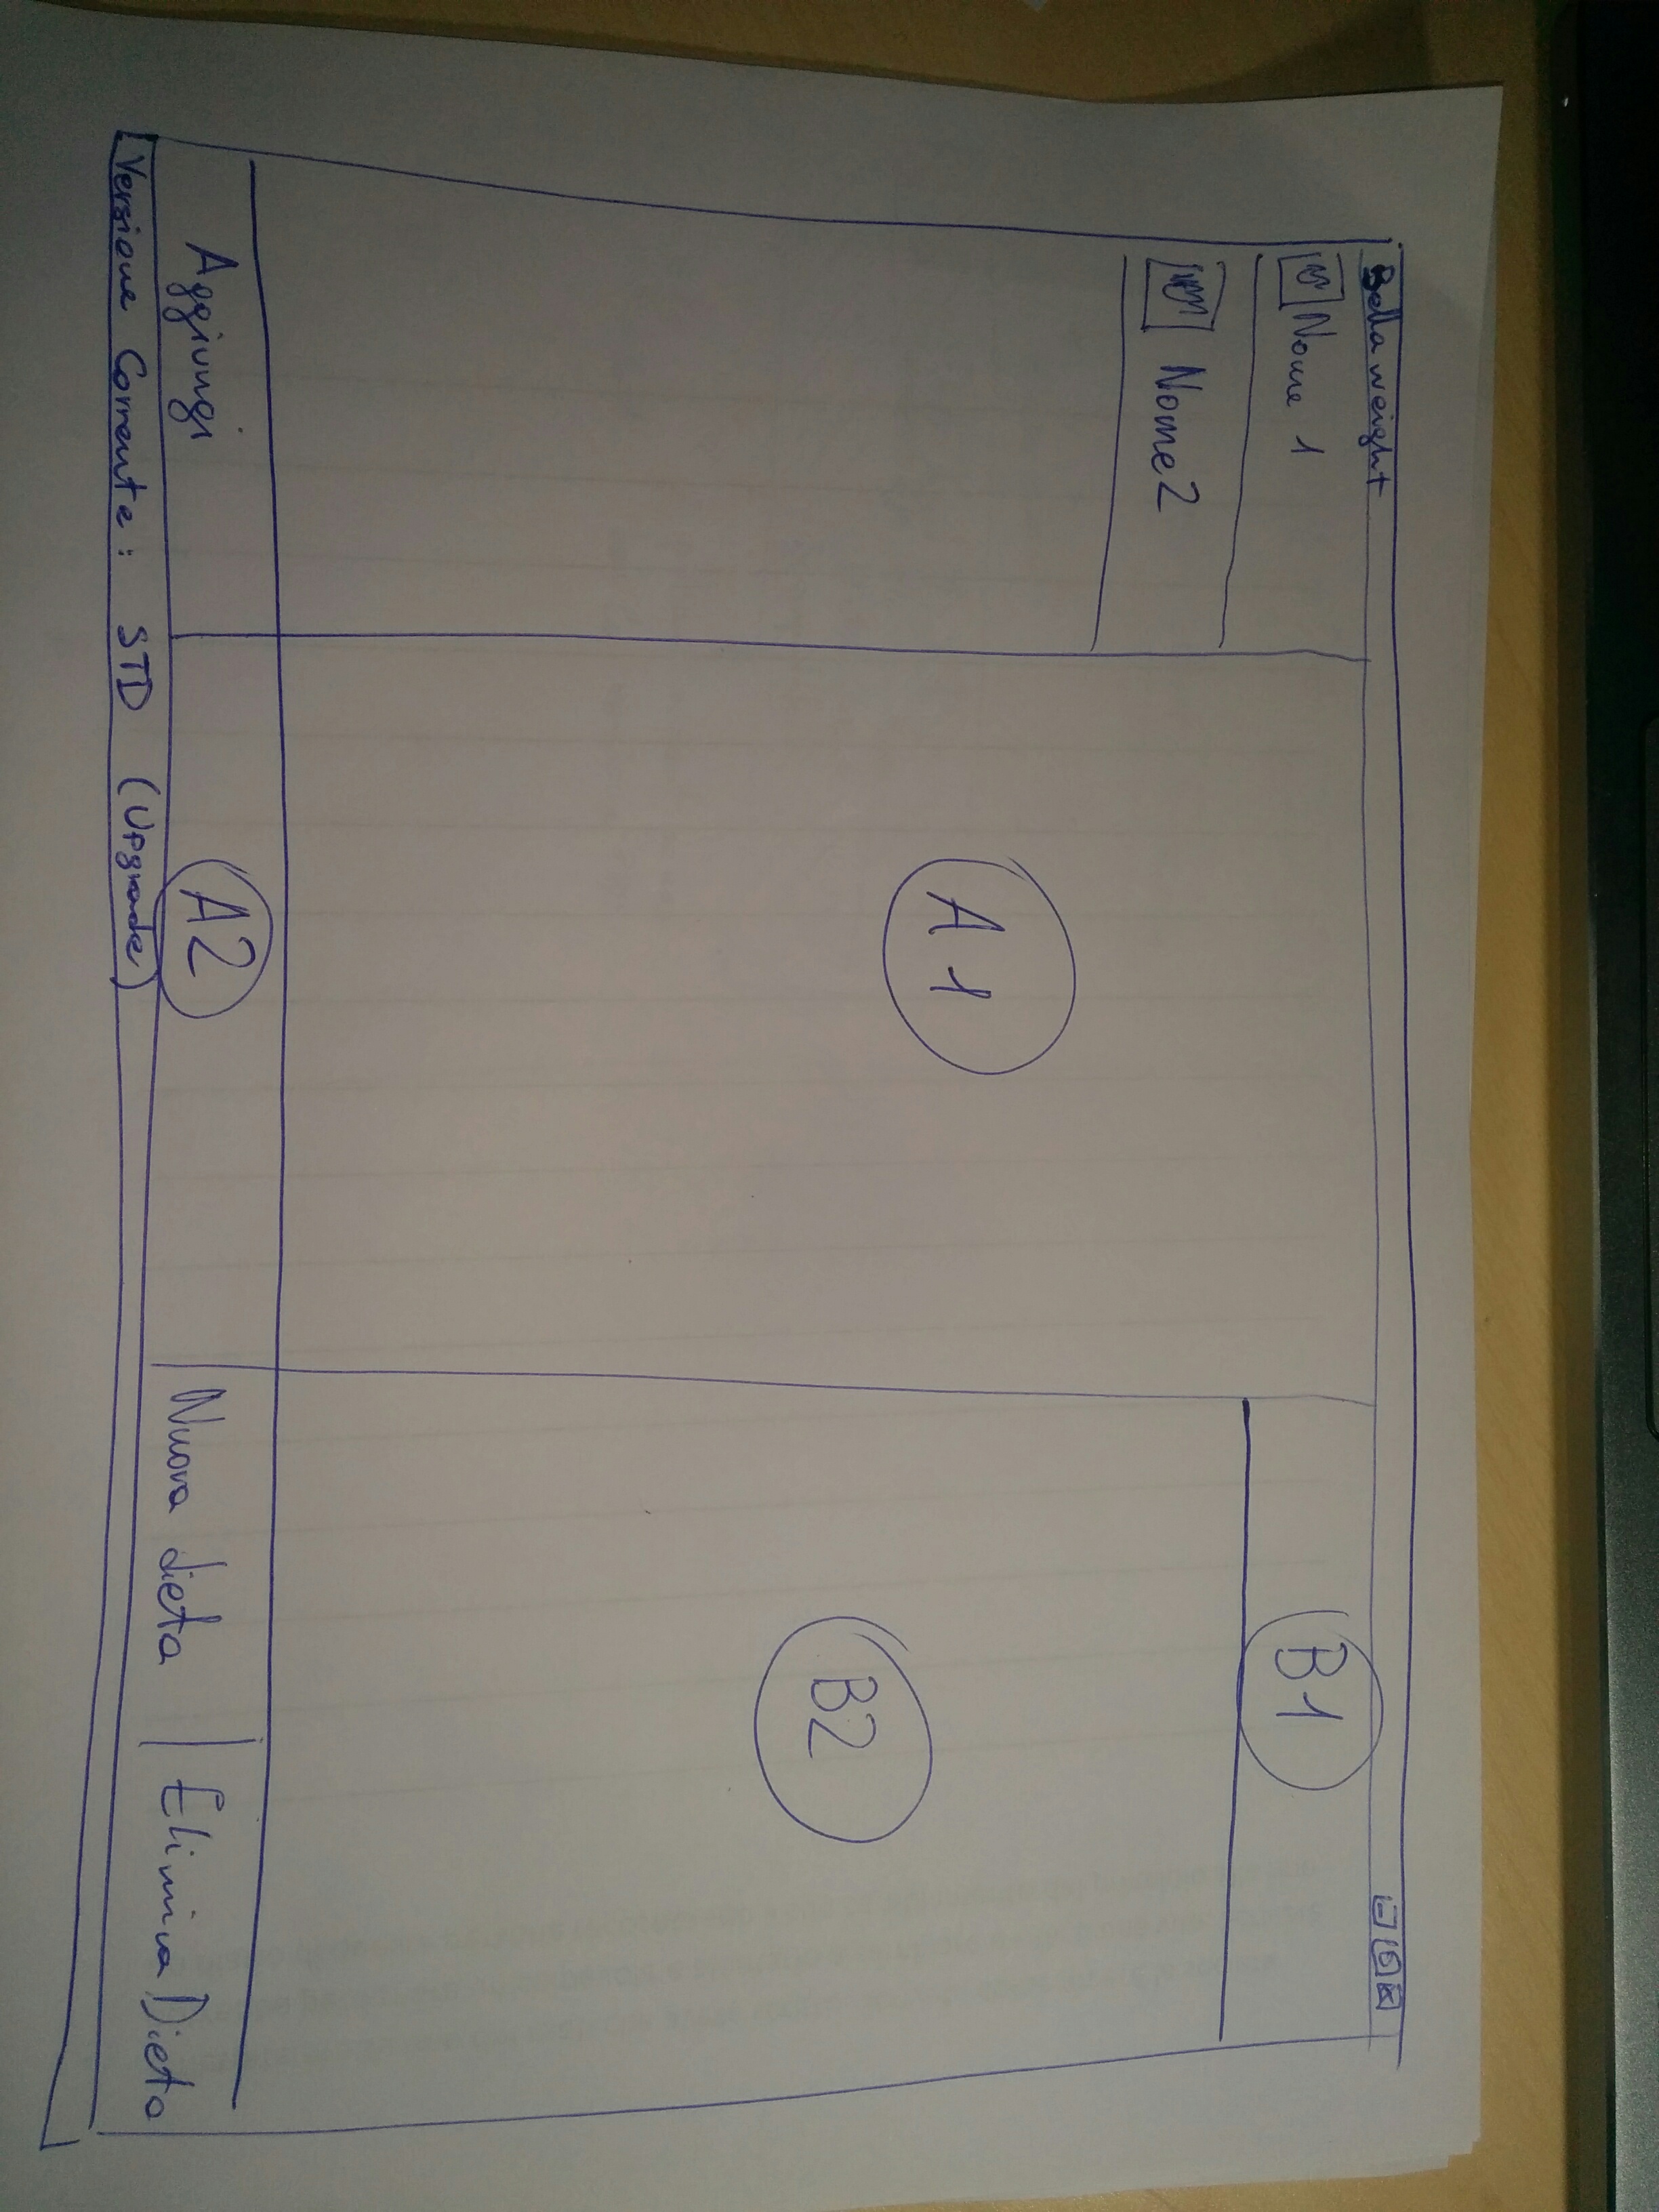 Bella weight
Nome 1
Nome 2
A1
B1
B2
Aggiungi
A2
Nuova dieta
Elimina Dieta
Versione Corrente: STD (Upgrade)